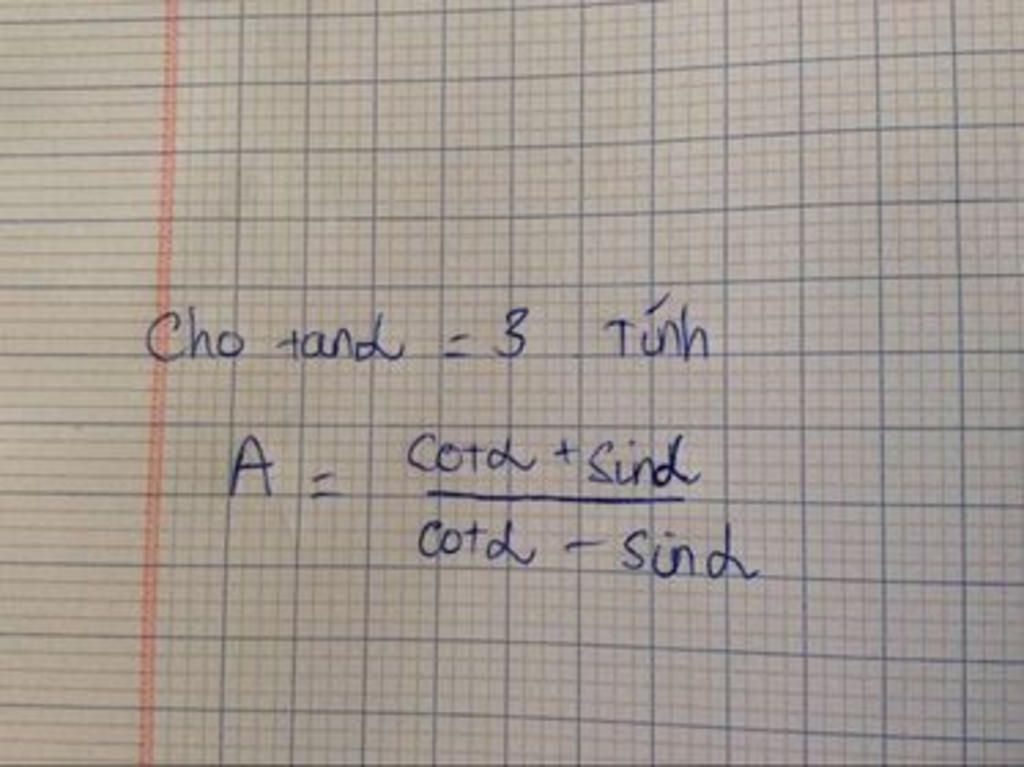 Cho tanα = 3 Tính
A = \frac{cotα + sinα}{cotα - sinα}